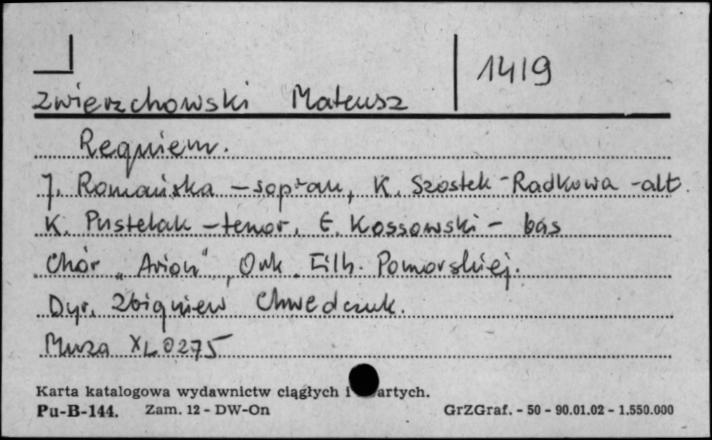 1419
Zwierzchowski Mateusz
Requiem.
J. Romańska - sopran, K. Szostek-Radkowa - alt
K. Pustelak - tenor, E. Kossowski - bas
Chór "Arion", Ork. Filh. Pomorskiej.
Dyr. Zbigniew Chwedczuk.
Muza XL 0275
Karta katalogowa wydawnictw ciągłych i artych.
Pu-B-144. Zam. 12 - DW-On GrZGraf. - 50 - 90.01.02 - 1.550.000